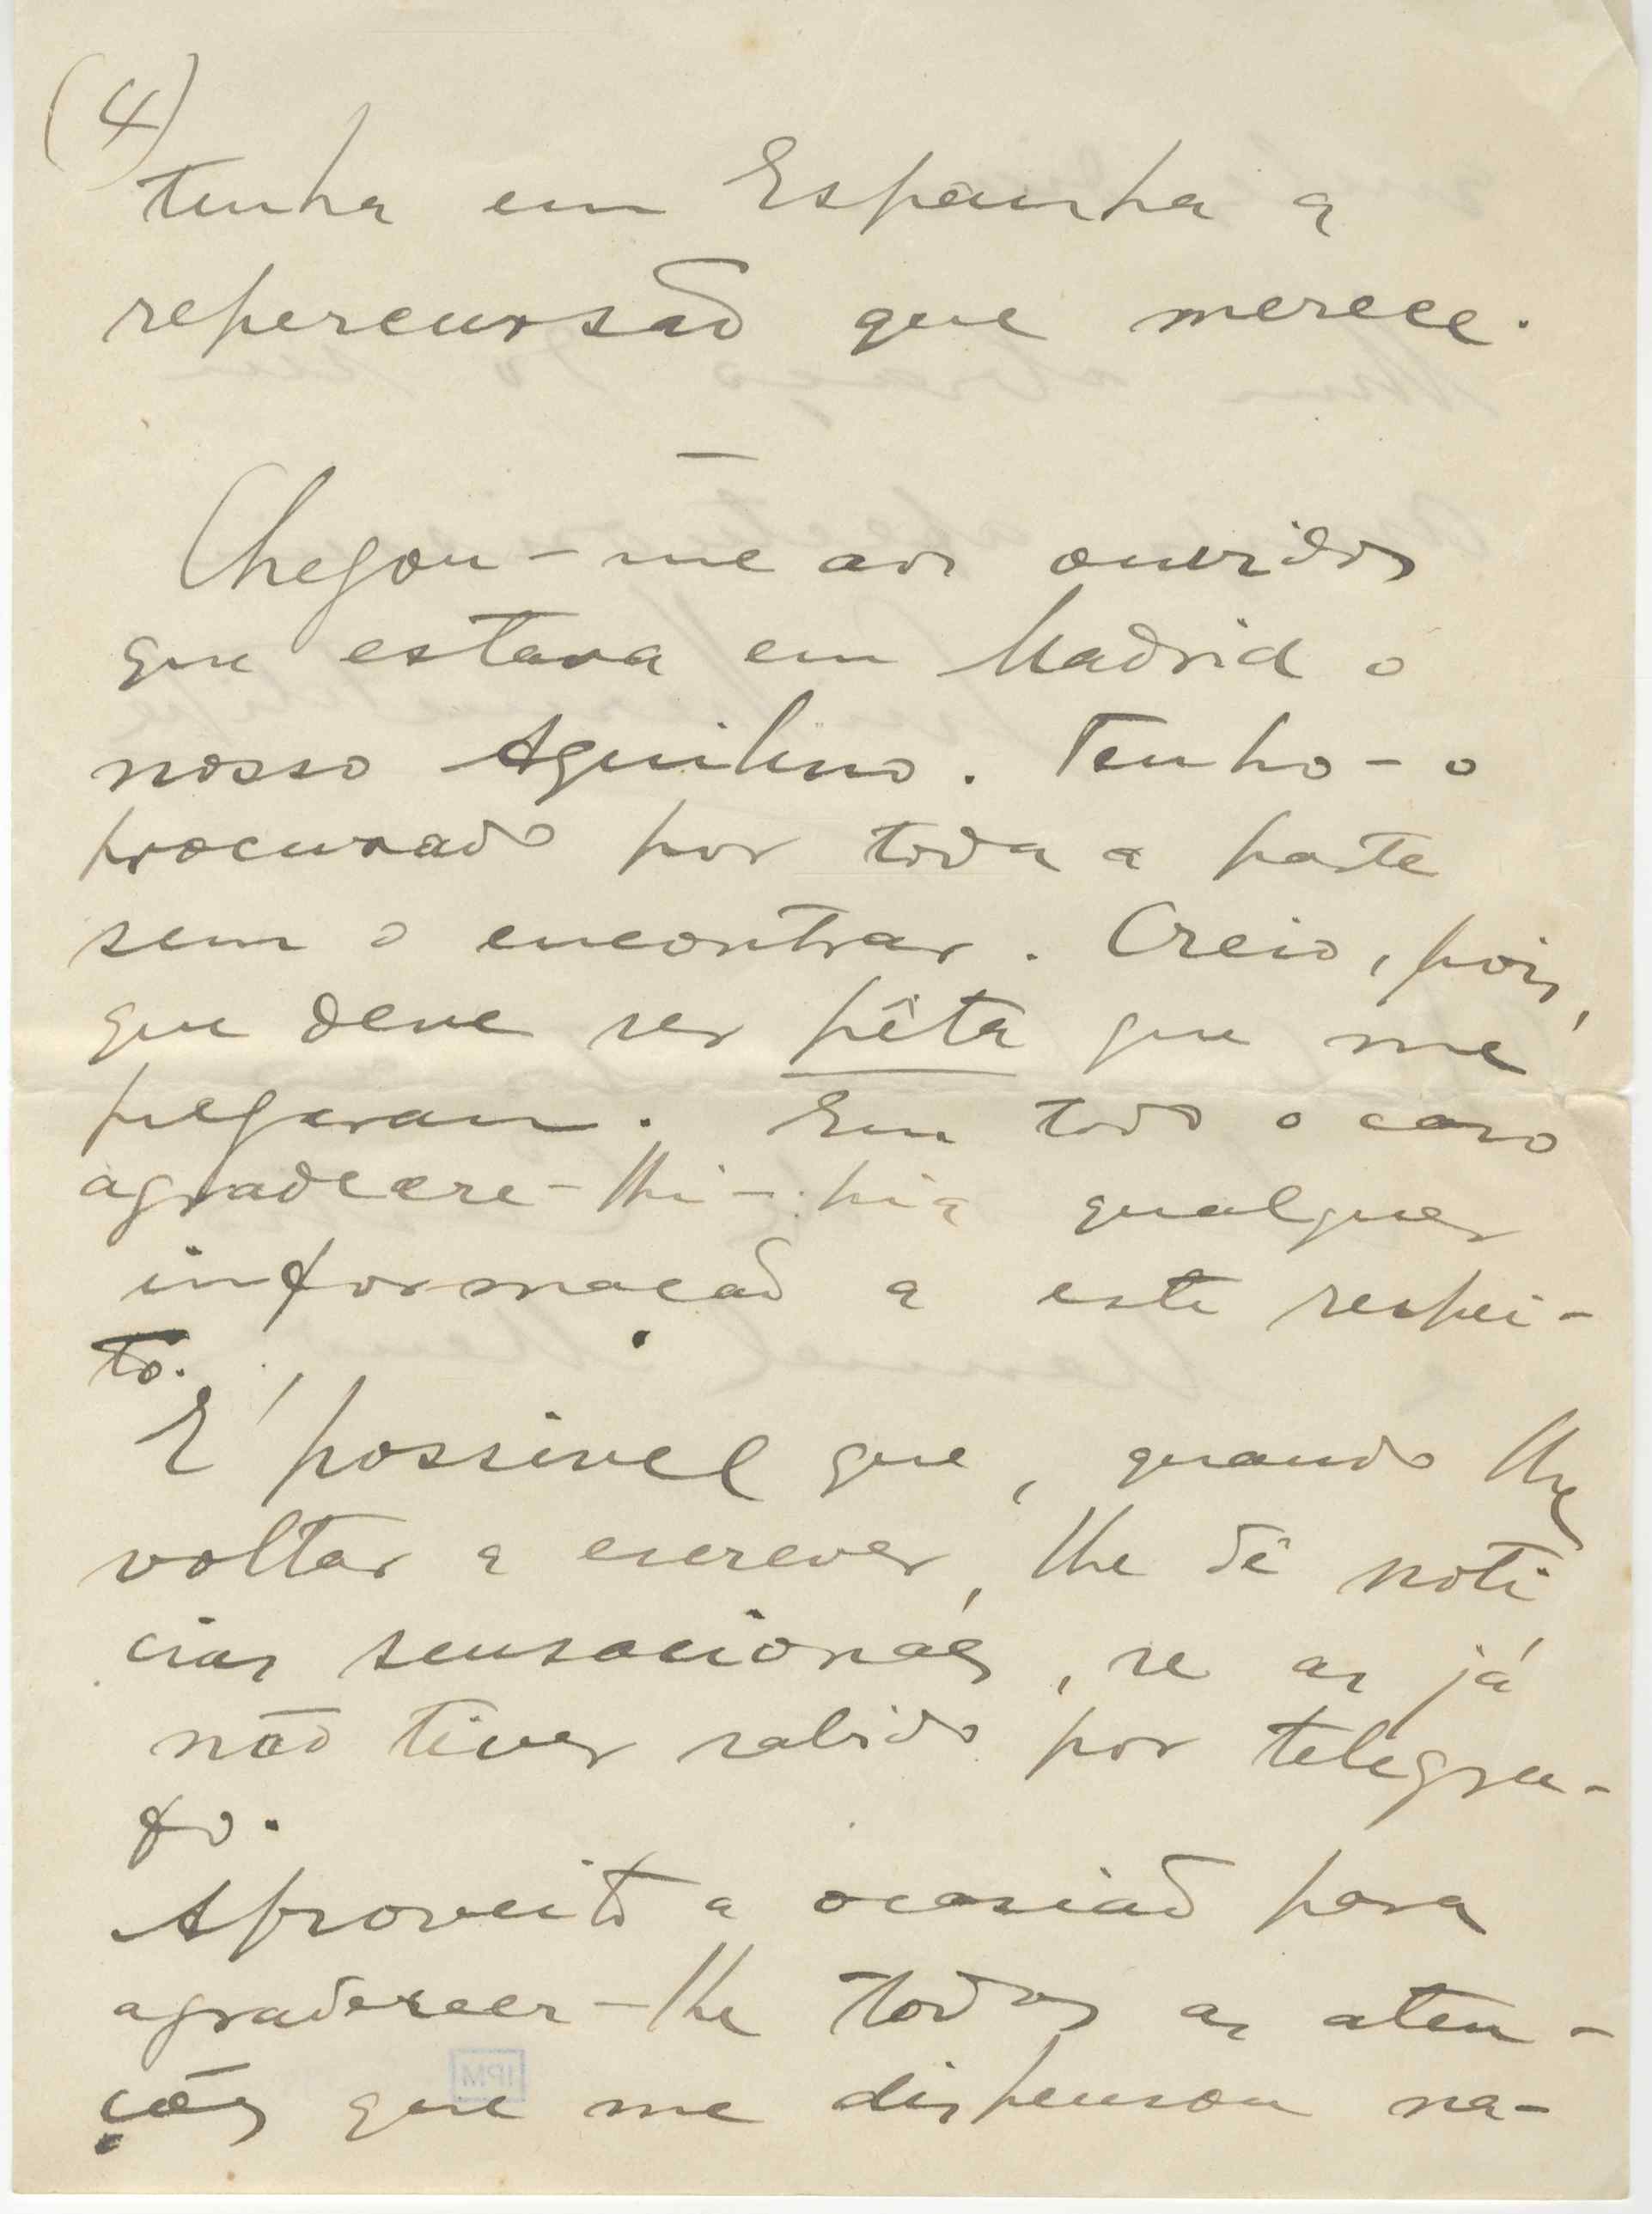 (4)
tenha em Espanha a
repercursão que merece.
—
Chegou-me aos ouvidos
que estava em Madrid o
nosso Aquilino. Tenho-o
procurado por toda a parte
sem o encontrar. Creio, pois,
que deve ser pêta que me
pregaram. Em todo o caso
agradecere-lhe-hia qualquer
informação a este respei-
to.
E' possivel que, quando lhe
voltar a escrever, lhe dê noti
cias sensacionáes, se as já
não tiver sabido por telegra-
fo.
Aproveito a ocasião para
agradecer-lhe todas as aten-
ções que me dispensou na-
IPM